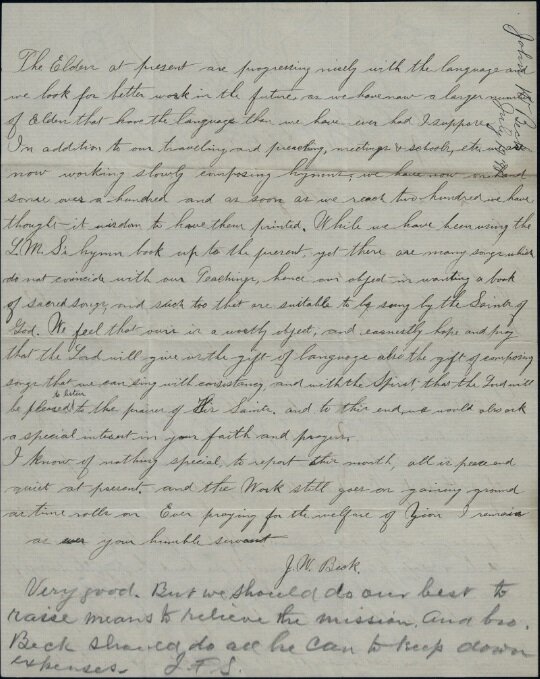 The Elders at present are progressing nicely with the language and
we look for better work in the future, as we have now a larger number
of Elders that have the language than we have ever had I suppose.
In addition to our travelling and preaching, meetings & schools, etc. we are
now working slowly composing hymns, we have now on hand
some over a hundred and as soon as we reach two hundred we have
thought it wisdom to have them printed. While we have been using the
L. M. S's hymn book up to the present, yet there are many songs which
do not coincide with our Teachings, hence our object in wanting a book
of sacred songs, and such too that are suitable to be sung by the Saints of
God. We feel that ours is a worthy object, and earnestly hope and pray
that the Lord will give us the gift of language also the gift of composing
songs that we can sing with consistency, and with the Spirit that the Lord will
be pleased to listen to the praises of His Saints. and to this end, we would also ask
a special interest in your faith and prayers.
I know of nothing special, to report this month, all is peace and
quiet at present. and the Work still goes on gaining ground
as time rolls on Ever praying for the welfare of Zion I remain
as ever your humble servant
J. W. Beck.
Very good. But we should do our best to
raise means to relieve the mission. And bro.
Beck should do all he can to keep down
expenses. J. F. S.
John W. Beck
July